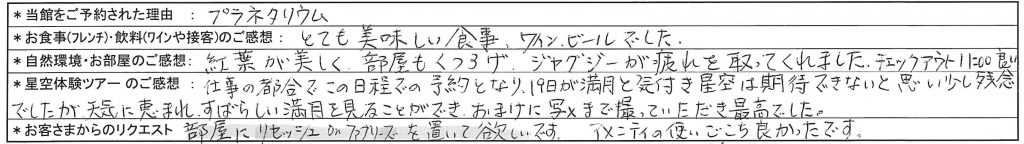 *当館をご予約された理由 : プラネタリウム
*お食事(フレンチ)・飲料(ワインや接客)のご感想: とても美味しい食事、ワイン、ビールでした。
*自然環境・お部屋のご感想: 紅葉が美しく、部屋もくつろげ、ジャグジーが疲れを取ってくれました。チェックアウト11:00良い
*星空体験ツアーのご感想: 仕事の都合でこの日程での予約となり、19日が満月と気付き星空は期待できないと思い少し残念
でしたが天気に恵まれ、すばらしい満月を見ることができ、おまけに写メまで撮っていただき最高でした。
*お客さまからのリクエスト 部屋にリセッシュ or ファブリーズを置いて欲しいです。 アメニティの使いごこち良かったです。